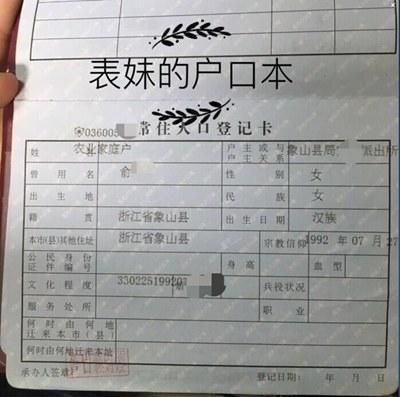 表妹的户口本
036005
常住人口登记卡
姓 农业家庭户 户主或与户主关系 象山县局 派出所
曾用名 俞 性别 女
出生地 民族 女
籍贯 浙江省象山县 出生日期 汉族
本市(县)其他住址 浙江省象山县 宗教信仰 1992 年 07 月 27
公民身份证件编号 身高 血型
文化程度 330225199207 兵役状况
服务处所 职业
何时由何地迁来本市(县)
何时由何地迁来本址
承办人签章: 登记日期: 年 月 日